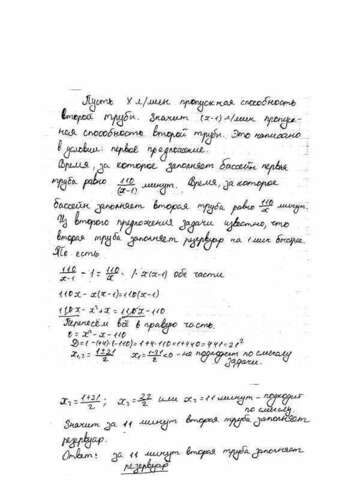 Пусть X л/мин пропускная способность
второй трубы. Значит (x-1) л/мин пропуск-
ная способность второй трубы. Это написано
в условии: первое предложение.
Время, за которое заполняет бассейн первая
труба равно 110/(x-1) минут. Время, за которое
бассейн заполняет вторая труба равно 110/x минут.
Из второго предложения задачи известно, что
вторая труба заполняет резервуар на 1 мин
То есть
110/x-1 - 1 = 110/x /· x(x-1) обе части
110x - x(x-1) = 110(x-1)
110x - x² + x = 110x - 110
Перенесём всё в правую часть.
0 = x² - x - 110
D = (-1)-4·(-110) = 1+4·110 = 1+440 = 441 = 21²
x₁,₂ = 1±21/2 x₁ = 1-21/2 < 0 - не подходит по смыслу
задачи.
x₂ = 1+21/2 ; x₂ = 22/2 или x₂ = 11 минут - подходит
по смыслу.
Значит за 11 минут вторая труба заполняет
резервуар.
Ответ: за 11 минут вторая труба заполняет
резервуар